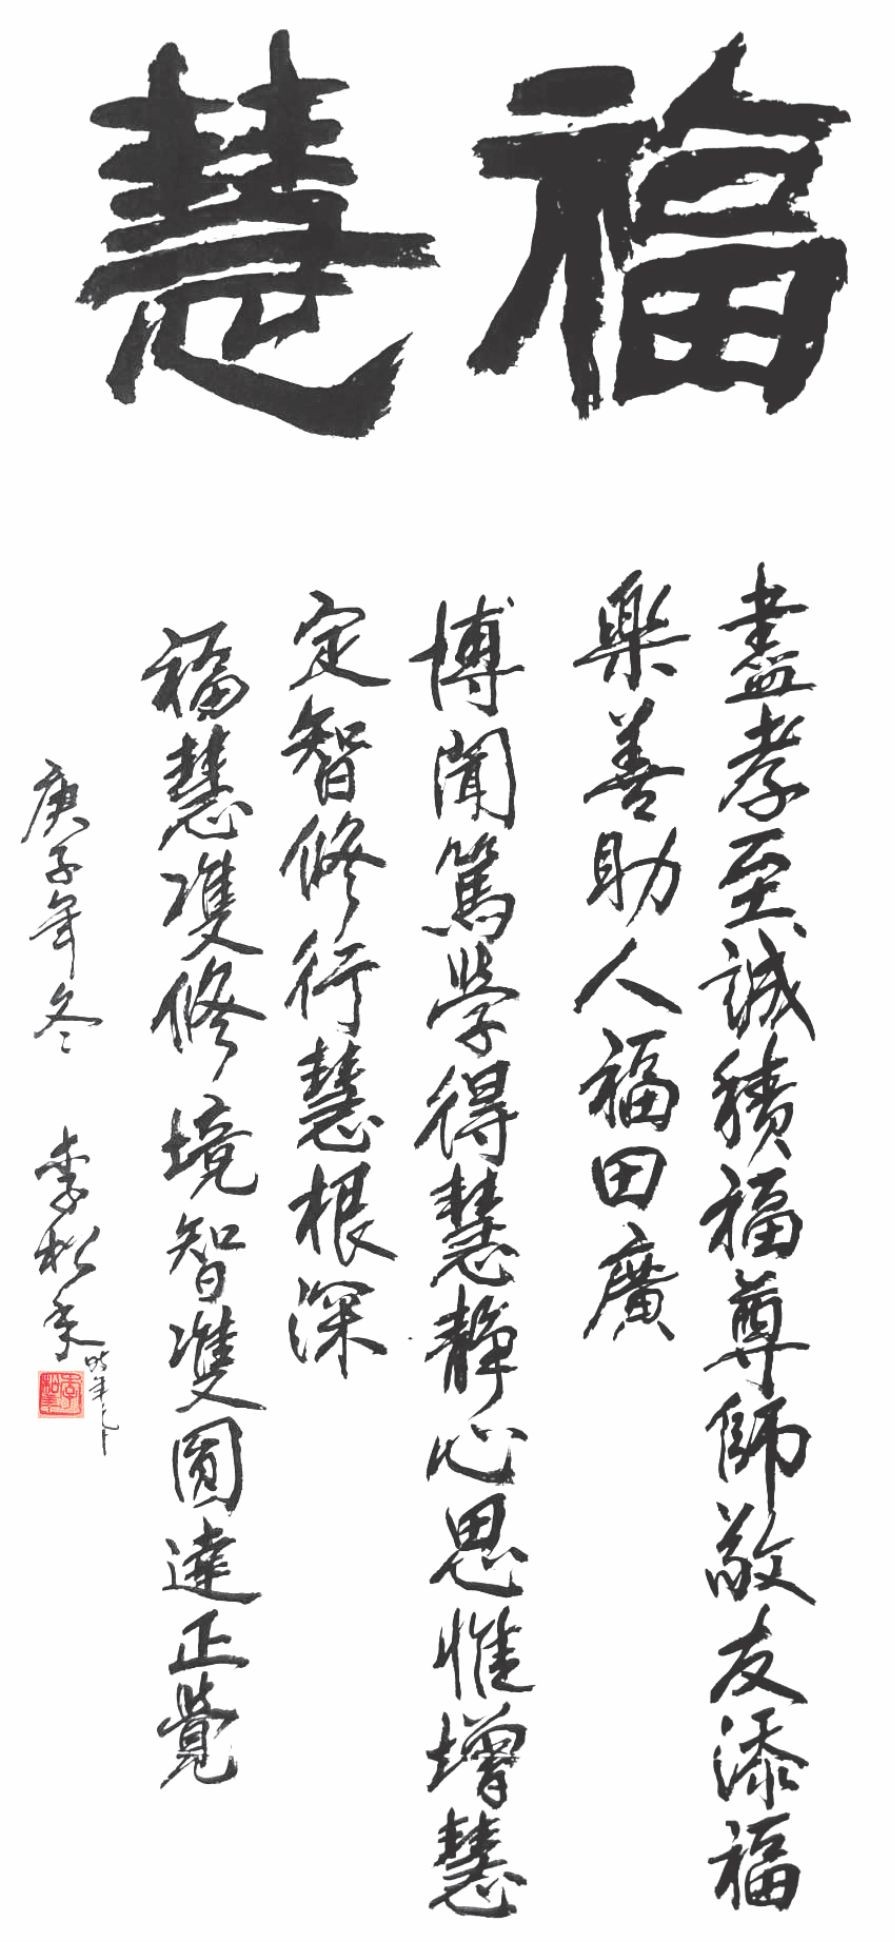 福慧
盡孝至誠積福尊師敬友添福
樂善助人福田廣
博聞篤學得慧靜心思惟增慧
定智修行慧根深
福慧雙修境智雙圓達正覺
庚子年冬 李松
時年